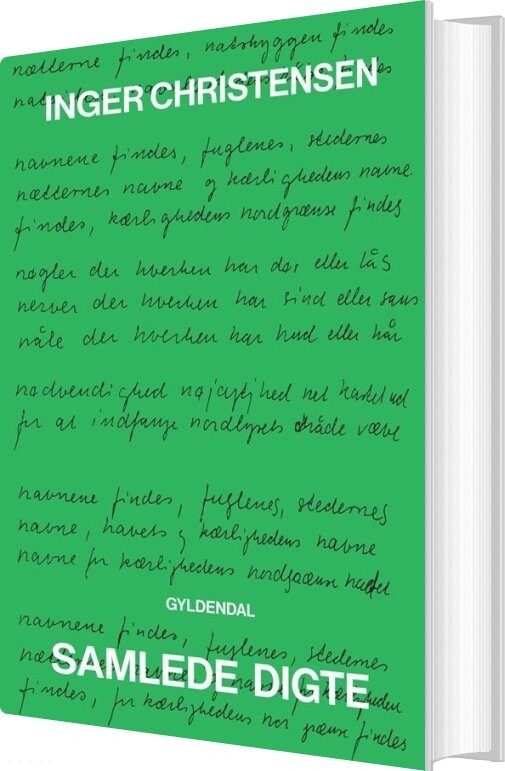 nætterne findes, natskyggen findes
INGER CHRISTENSEN
navnene findes, fuglenes, stedernes
nætternes navne og kærlighedens navne
findes, kærlighedens nordgrænse findes
nøgler der hverken har dør eller lås
nerver der hverken har sind eller sans
nåle der hverken har hud eller hår
nødvendighed nøjagtighed net kastet ud
for at indfange nordlysets våde væve
navnene findes, fuglenes, stedernes
navne, havets og kærlighedens navne
navne for kærlighedens nordgrænse
GYLDENDAL
navnene findes, fuglenes, stedernes
SAMLEDE DIGTE
findes, for kærlighedens nor grænse findes